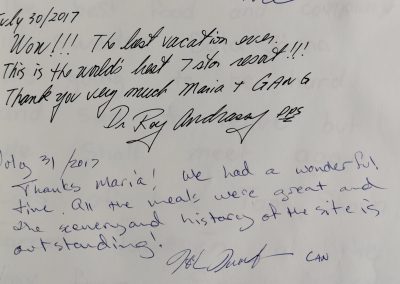 July 30/2017
Wow!!! The best vacation ever.
This is the world's best 7 star resort!!!
Thank you very much Maria + GANG
Dr Roy Andrassy DDS
July 31/2017
Thanks Maria! We had a wonderful
time. All the meals were great and
the scenery and history of the site is
outstanding!
CAN